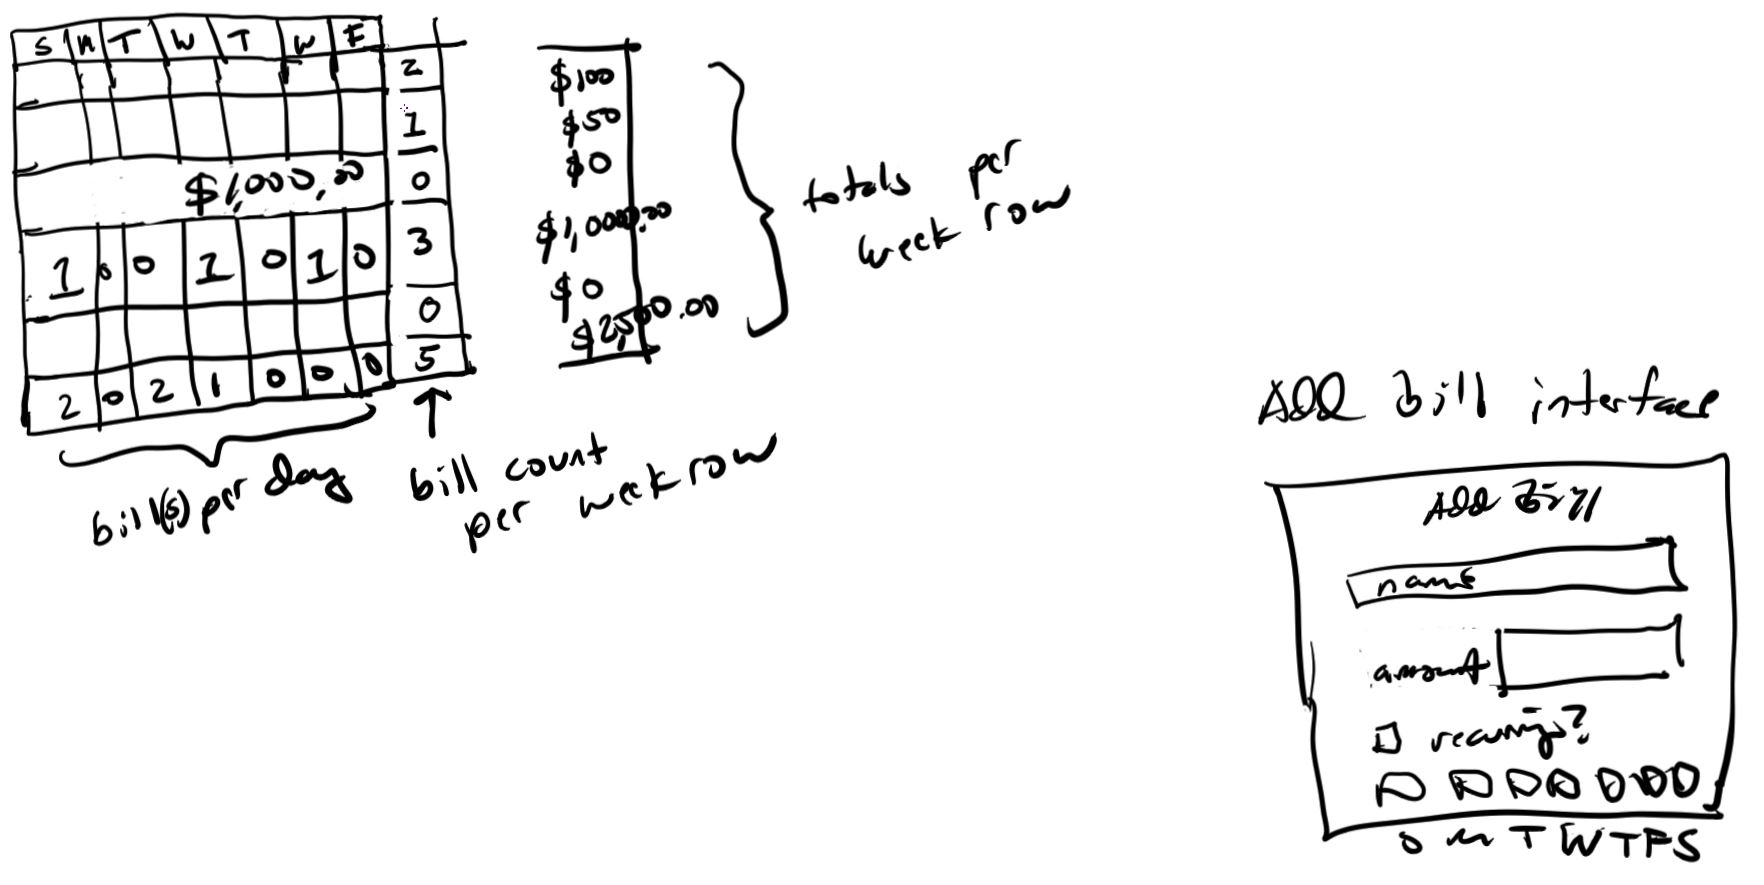 S M T W T W F
2
1
$1,000.00 0
1 0 0 1 0 1 0 3
0
2 0 2 1 0 0 0 5
bill(s) per day
bill count
per week row
$100
$50
$0
$1,000.00
$0
$2,500.00
totals per
week row
ADD bill interface
ADD Bill
name
amount
recurring?
S M T W T F S